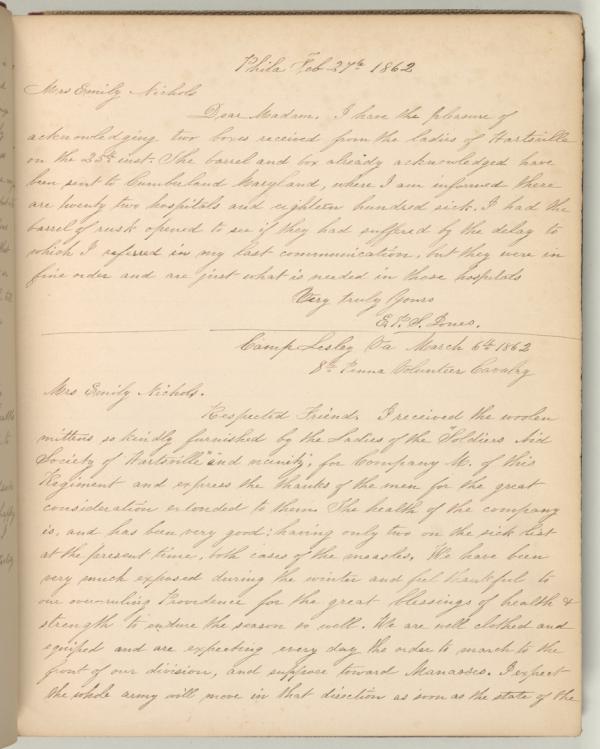 Phila Feb 27th 1862
Mrs Emily Nichols
Dear Madam. I have the pleasure of
acknowledging two boxes received from the ladies of Hartsville
on the 25th inst. The barrel and box already acknowledged have
been sent to Cumberland Maryland, where I am informed there
are twenty two hospitals and eighteen hundred sick. I had the
barrel of rusk opened to see if they had suffered by the delay to
which I referred in my last communication, but they were in
fine order and are just what is needed in those hospitals
Very truly Yours
E. P. S. Jones.
Camp Lesley Va March 6th 1862
8th Penna Volunteer Cavalry
Mrs Emily Nichols.
Respected Friend. I received the woolen
mittens so kindly furnished by the Ladies of the "Soldiers Aid
Society of Hartsville" and vicinity, for Company M. of this
Regiment and express the thanks of the men for the great
consideration extended to them. The health of the company
is, and has been very good; having only two on the sick list
at the present time, both cases of the measles. We have been
very much exposed during the winter and feel thankful to
our over-ruling Providence for the great blessings of health &
strength to endure the season so well. We are well clothed and
equiped and are expecting every day the order to march to the
front of our division, and suppose toward Manasses. I expect
the whole army will move in that direction as soon as the state of the